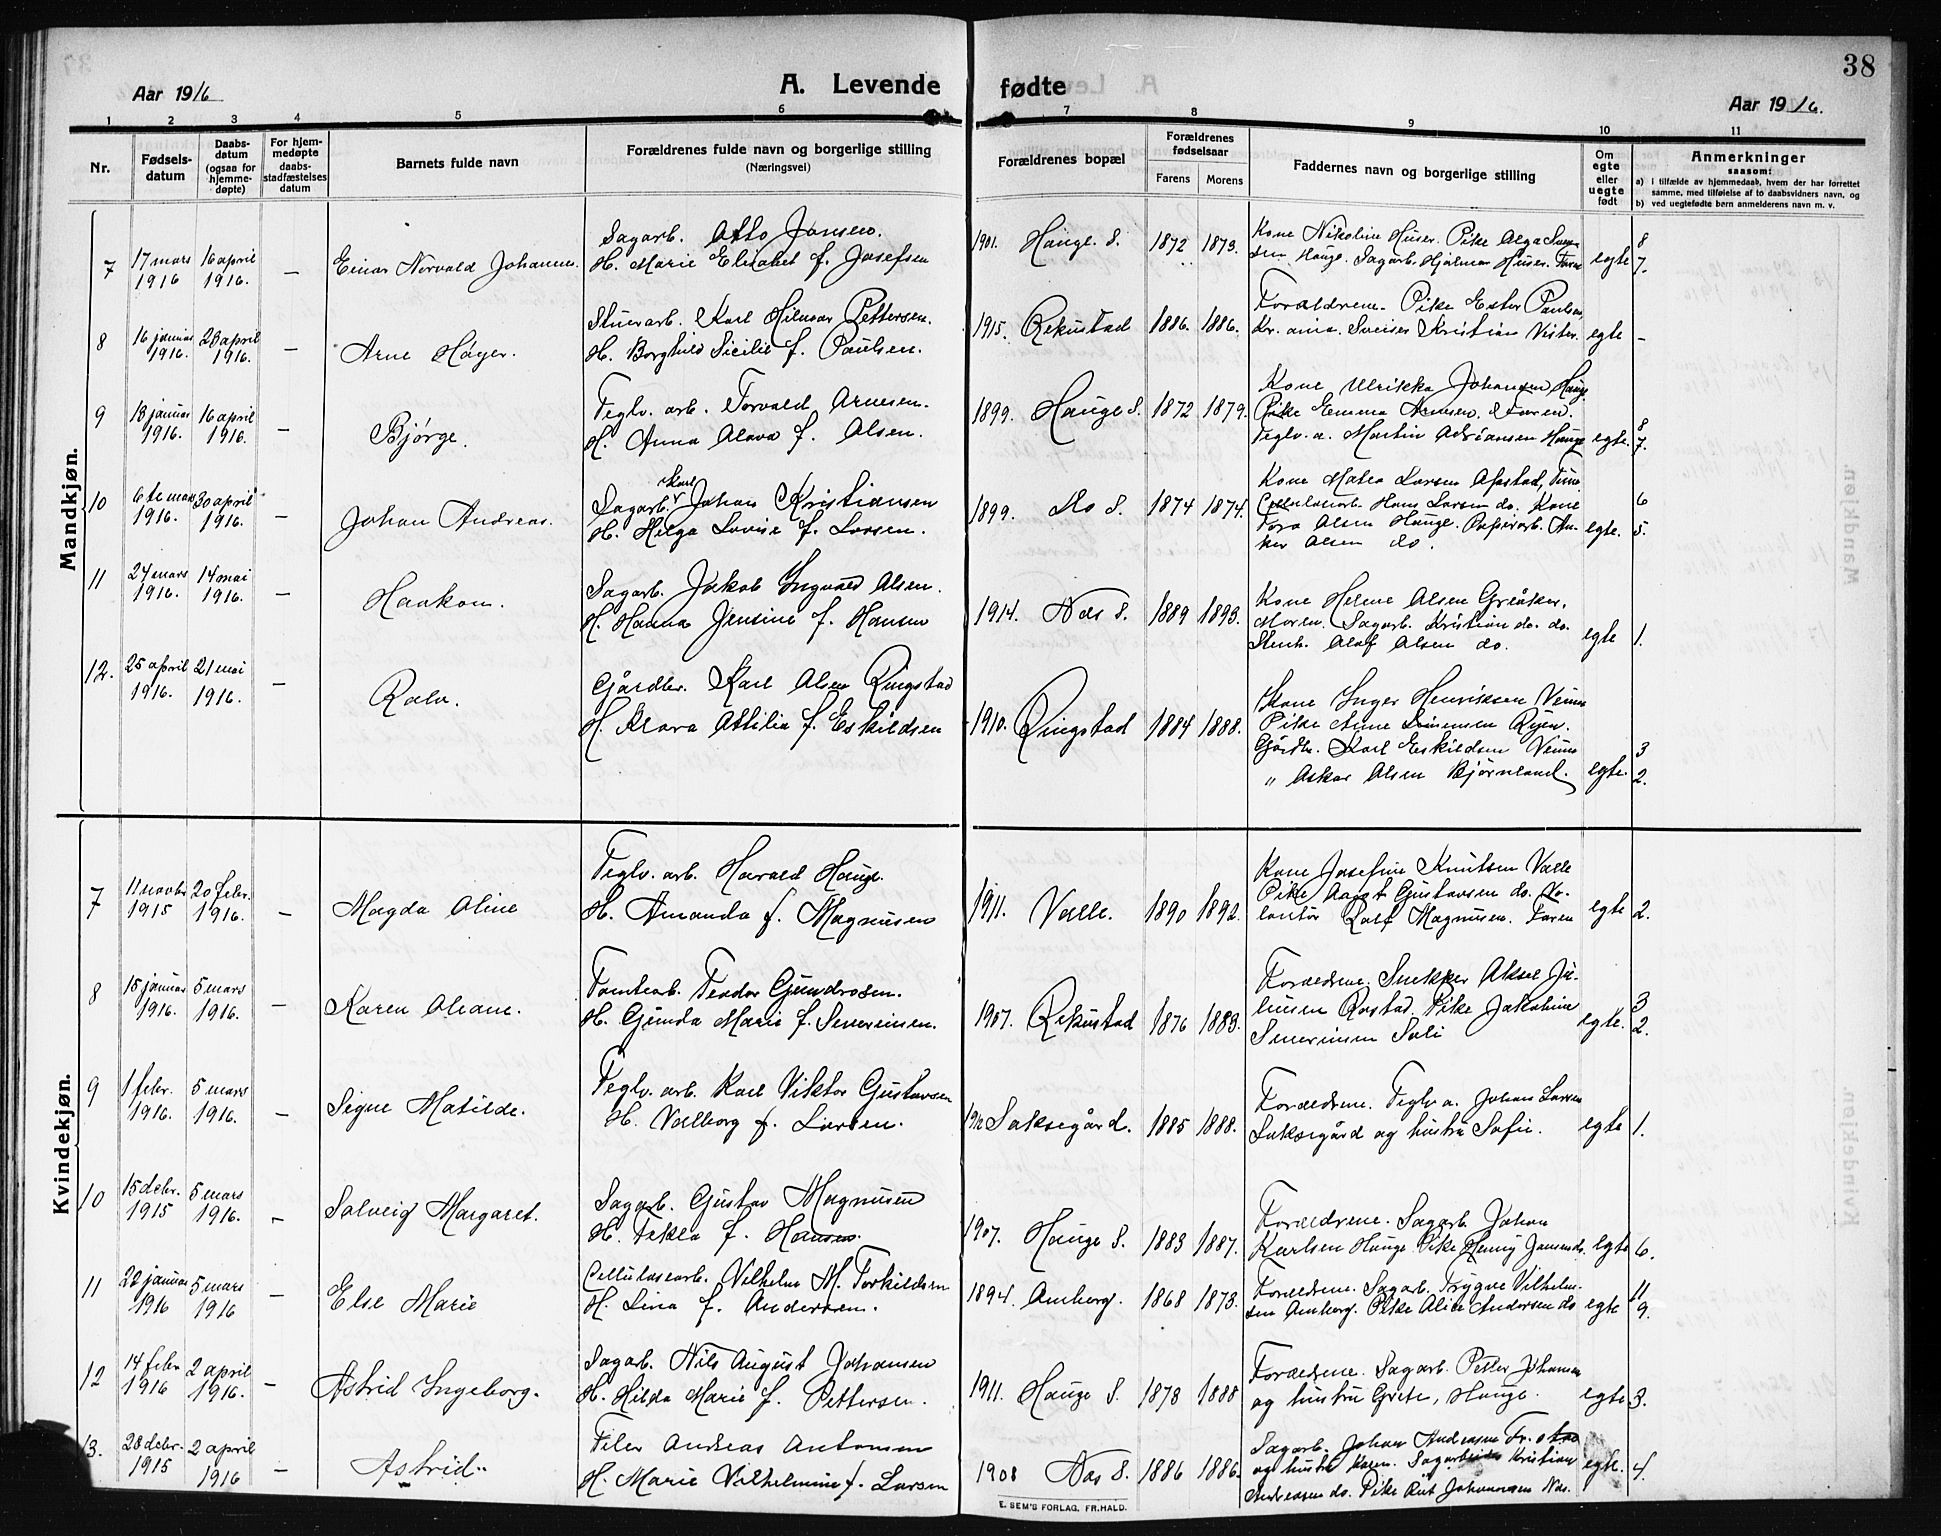 38
Aar 1916
A. Levende fødte
Aar 1916.
1 2 3 4 5 6 7 8 9 10 11
Nr.
Fødsels-
datum
Daabs-
datum
(ogsaa for
hjemme-
døpte)
For hjem-
medøpte
daabs-
stadfæstelses
datum
Barnets fulde navn
Forældrenes fulde navn og borgerlige stilling
(Næringsvei)
Forældrenes bopæl
Forældrenes
fødselsaar
Farens Morens
Faddernes navn og borgerlige stilling
Om
egte
eller
uegte
født
Anmerkninger
saasom:
a) i tilfælde av hjemmedaab, hvem der har forrettet
samme, med tilføielse af to daabsvidners navn, og
b) ved uegtefødte børn anmelderens navn m. v.
Mandkjøn.
7 17 mars 1916 16 april 1916. — Einar Norvald Johannes.
Sagarb. Otto Jansen.
H. Marie Elisabet f. Josefsen
1901. Hauge S. 1872 1873.
Kone Nikoline Huser. Pike Olga
Hauge. Sagarb. Hjalmar Huser.
egte 8 7.
8 16 januar 1916. 23 april 1916. — Arne Høyer.
Stuerarb. Karl Hilmar Pettersen.
H. Borghild Sicilie f. Paulsen.
1915. Rekustad 1886. 1886.
Forældrene. Pike Ester Paulsen
Kr.ania. Sveiser Kristian Vister.
egte -
9 18 januar 1916. 16 april 1916. — Bjørge.
Teglv. arb. Torvald Arnesen.
H. Anna Olava f. Olsen.
1899. Hauge S. 1872 1879.
Kone Ulrikka Johansen Hauge
Pike Emma Arnesen. Faren.
Teglv. a. Martin Adriansen Hauge
egte. 8 7.
10 6te mars 1916. 30 april 1916. — Johan Andreas.
Karl
Sagarb. Johan Kristiansen
H. Helga Lovise f. Larsen.
1899. Do S. 1874 1874.
Kone Matea Larsen Opstad, Tune
Cellulosearb. Hans Larsen do. Kone
Tora Olsen Hauge. Papirarb. An-
ker Olsen do.
egte. 6 5.
11 24 mars 1916. 14 mai 1916. — Haakon.
Sagarb. Jakob Ingvald Olsen.
H. Hanna Jensine f. Hansen
1914. Nes S. 1889 1893.
Kone Helene Olsen Greåker.
Moren. Sagarb. Kristian do. do.
Olaf Olsen do.
egte 1.
12. 25 april 1916. 21 mai 1916. — Rolv.
Gårdbr. Karl Olsen Ringstad
H. Klara Attilia f. Eskildsen
1910. Ringstad 1884 1888.
Kone Inger Henriksen
Pike Anne Ryen.
Gårdbr. Karl Eskildsen
" Oskar Olsen Bjørnland.
egte. 3 2.
Kvindekjøn.
7 11 novbr 1915 20 febr. 1916. — Magda Oline
Teglv. arb. Harald Hauge.
H. Amanda f. Magnusen
1911. Valle. 1890 1892.
Kone Josefine Knutsen Valle
Pike Aagot Gustavsen do. Vo-
lontør Rolf Magnusen. Faren
egte 2.
8 15 januar 1916. 5 mars 1916. — Karen Oleane.
Tomtearb. Teodor Gundrosen.
H. Gunda Marie f. Severinsen.
1907. Rekustad 1876 1883.
Forældrene. Snekker Aksel Ju-
liusen Rostad. Pike Jakobine
Severinsen Soli
egte. 3 2.
9 1 febr. 1916. 5 mars 1916. — Signe Matilde.
Teglv. arb. Karl Viktor Gustavsen
H. Valborg f. Larsen.
1912 Saksegård. 1885 1888.
Forældrene. Teglv a. Johan Larsen
Saksegård og hustru Sofie.
egte 1.
10 15 debr. 1915 5 mars 1916. — Solveig Margaret.
Sagarb. Gustav Magnusen
H. Tekla f. Hansen.
1907. Hauge S. 1883 1887.
Forældrene. Sagarb. Johan
Karlsen Hauge. Pike Henny Jansen do.
egte 6.
11 22 januar 1916 5 mars 1916 — Else Marie
Cellulosearb. Vilhelm M. Torkildsen
H. Lina f. Andersen.
1894. Amborg. 1868 1873.
Forældrene. Sagarb. Trygve Vilhelm-
sen Amborg. Pike Alice Andersen do
egte 11 9.
12 14 febr 1916 2 april 1916. — Astrid Ingeborg.
Sagarb. Nils August Johansen
H. Hilda Marie f. Pettersen.
1911. Hauge S. 1878 1888
Forældrene. Sagarb. Petter Johansen
og hustru Grete, Hauge.
egte 3.
13. 28 debr. 1915 2 april 1916 — Astrid.
Filer Andreas Antonsen
H. Marie Vilhelmine f. Larsen
1908 Nes S. 1886 1886.
Sagarb. Johan Andersen
og hustru Karen. Sagarbeider Kristian
Andreassen do. Pike Rut Johannesen Nes.
egte. 4.
E. SEM'S FORLAG, FR.HALD.